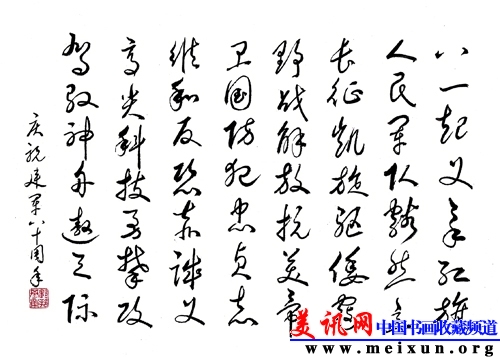 八一起义举红旗
人民军队豁然
长征凯旋驱倭寇
野战解放抗美帝
卫国防犯忠贞志
维和反恐赤诚义
高尖科技勇攀攻
驾驭神舟遨天际
庆祝建军八十周年
美讯网 中国书画收藏频道
www.meixun.org